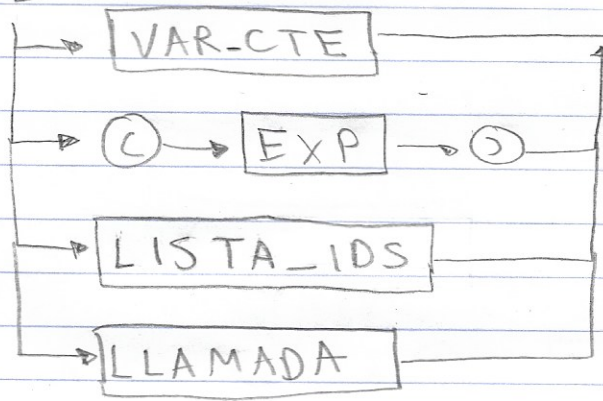 VAR_CTE
( EXP )
LISTA_IDS
LLAMADA